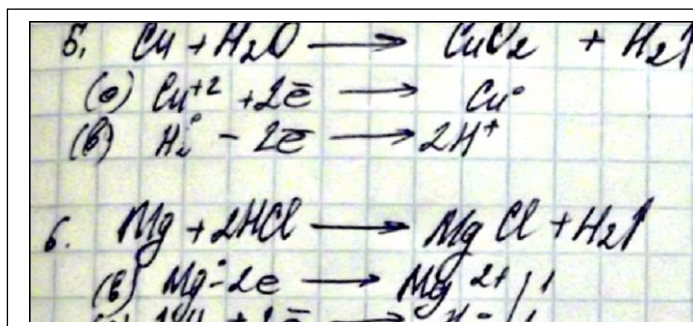 5. Cu + H₂O ⟶ CuO₂ + H₂↑
(о) Cu⁺² + 2ē ⟶ Cu°
(в) H₂° − 2ē ⟶ 2H⁺
6. Mg + 2HCl ⟶ MgCl + H₂↑
(в) Mg° − 2e ⟶ Mg²⁺